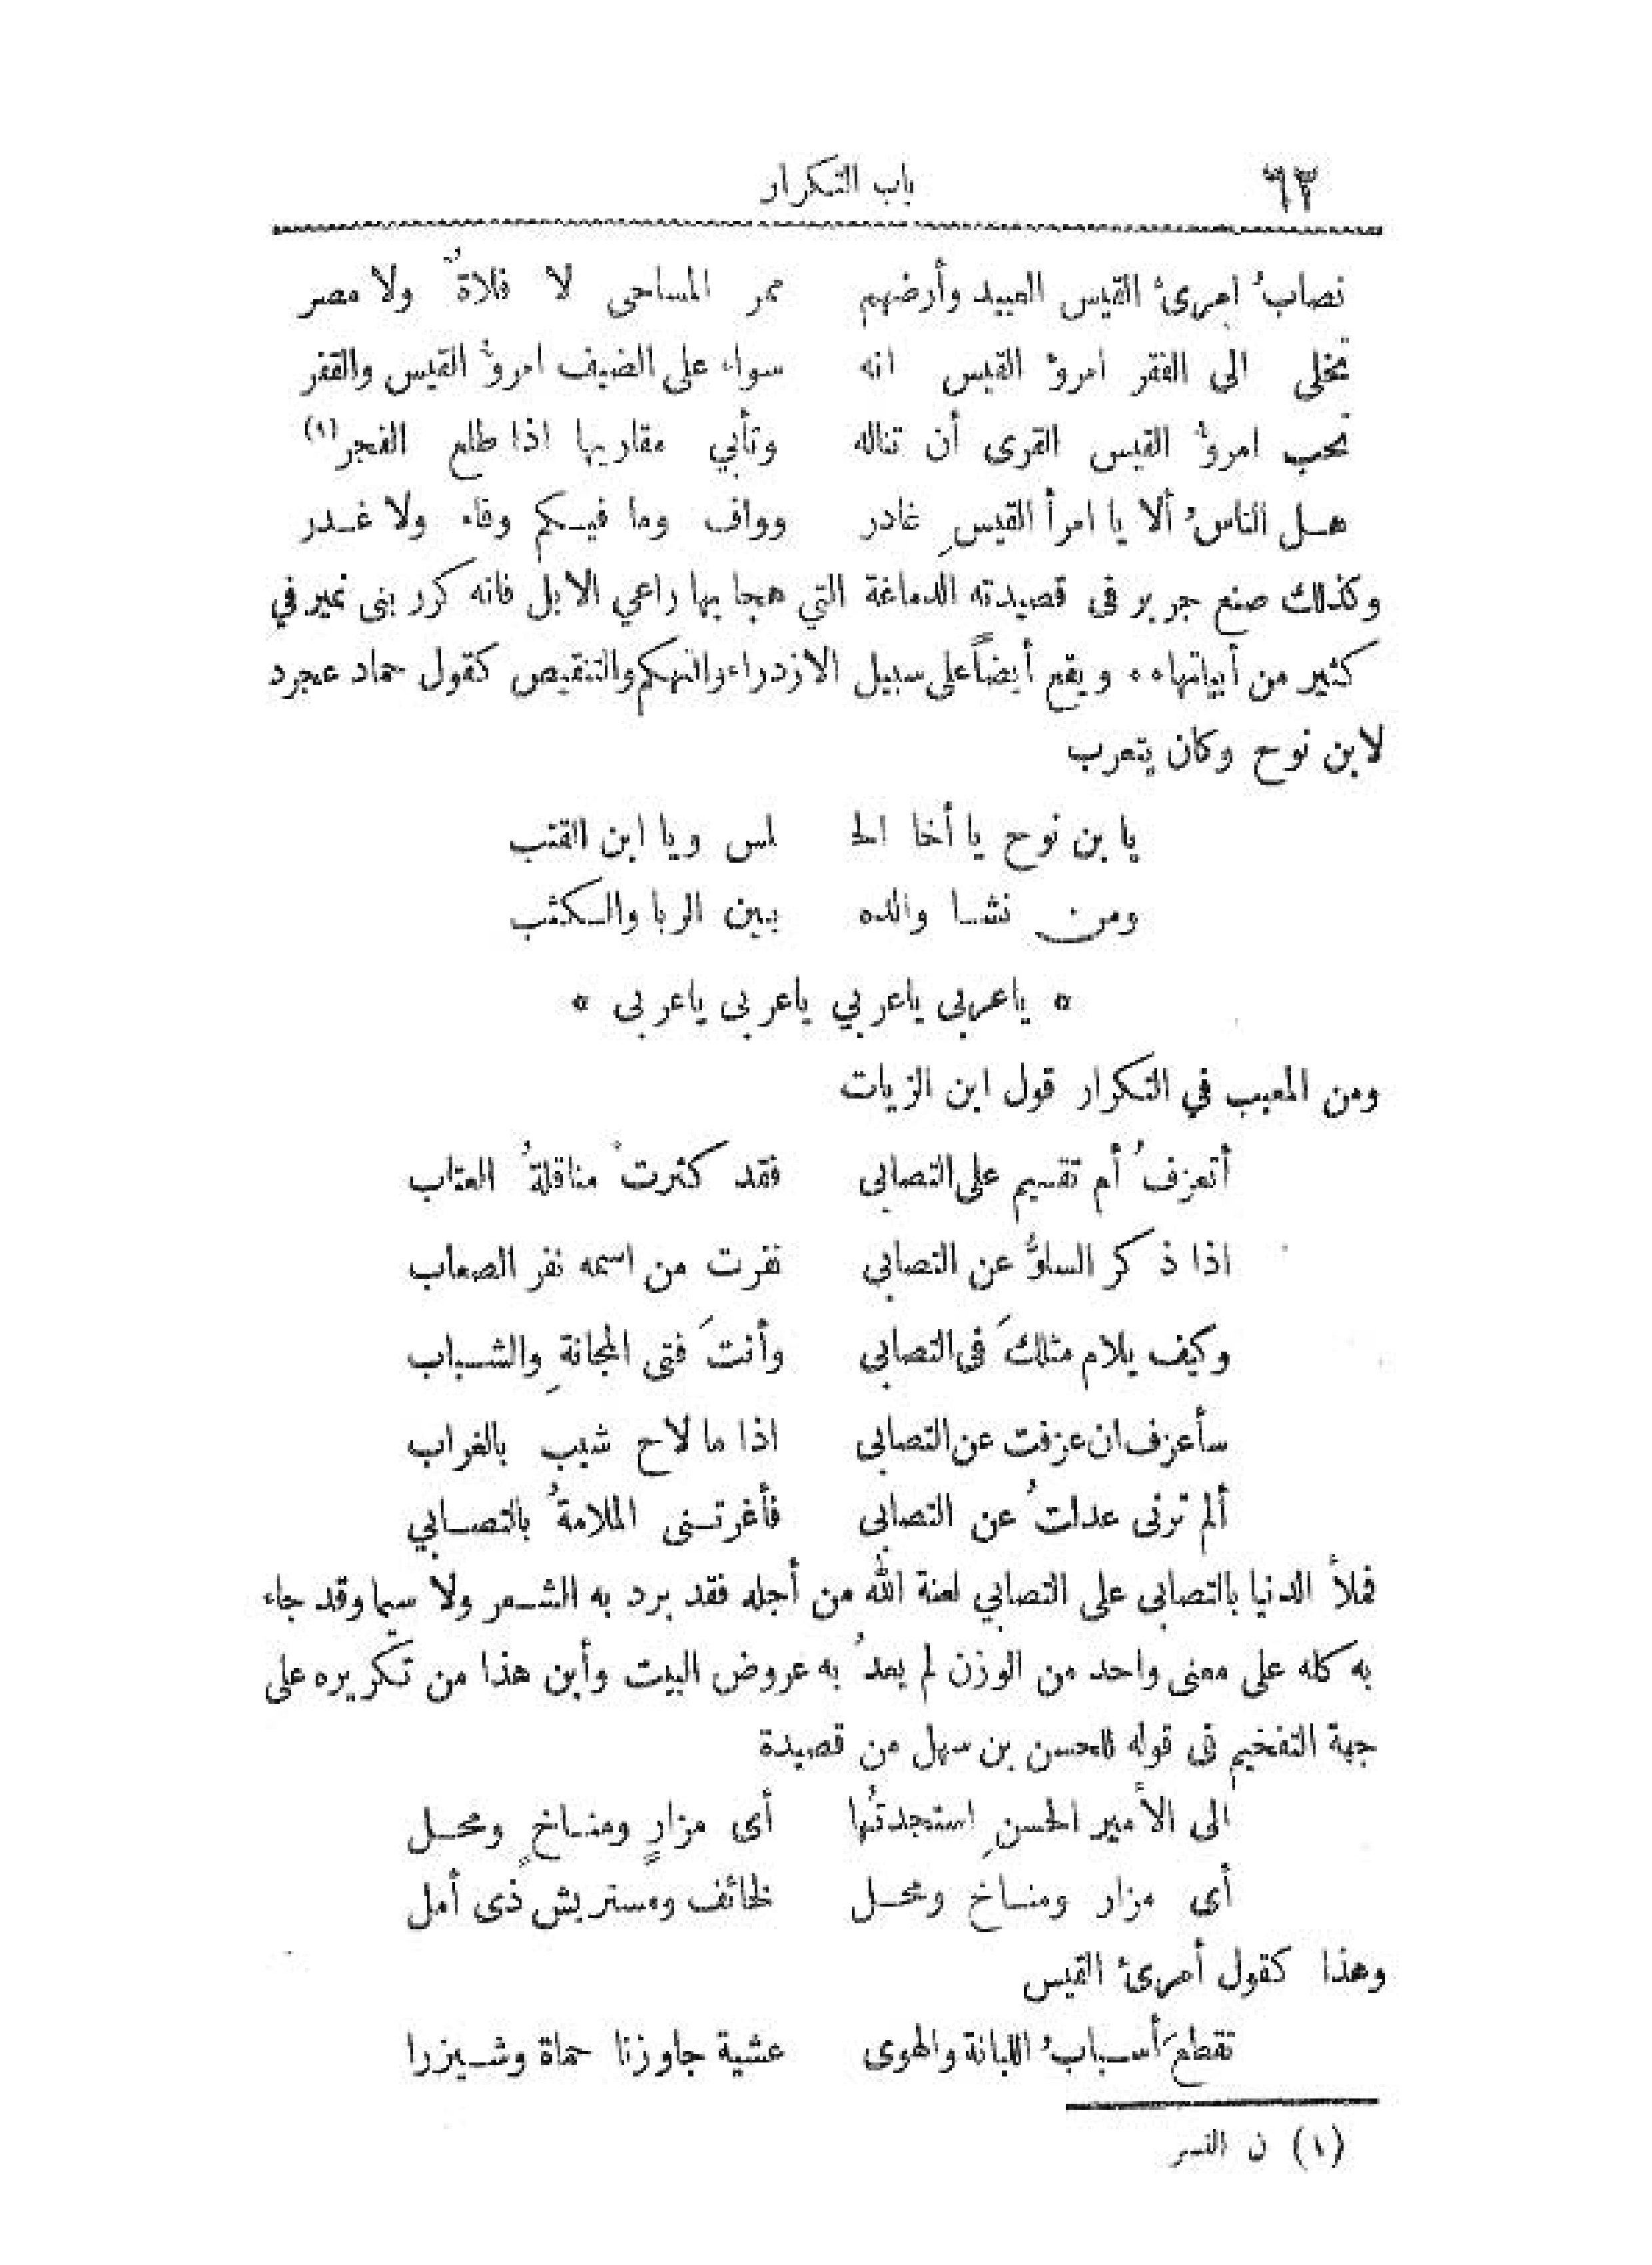 ٦٣ باب التكرار
نصابُ امرىء القيس العبيد وأرضهم ممر المساحى لا فلاةٌ ولا مصر
تخلى الى الفقر امرؤ القيس انه سواء على الضيف امرؤ القيس والقفر
تحب امرؤ القيس القرى أن تناله وتأبي مقاريها اذا طلع الفجر (١)
هل الناسُ ألا يا امرأ القيسِ غادر وواف وما فيكم وفاء ولا غدر
وكذلك صنع جرير فى قصيدته الدماغة التي هجا بها راعي الابل فانه كرر بنى نمير في
كثير من أبياتها٠٠ ويقع أيضاً على سبيل الازدراء والتهكم والتنقيص كقول حماد عجرد
لابن نوح وكان يتعرب
يا بن نوح يا أخا الحـ ـلس ويا ابن القتب
ومن نشا والده بين الربا والكثب
* ياعربى ياعربي ياعربى ياعربى *
ومن المعيب في التكرار قول ابن الزيات
أتعزفُ أم تقيم على التصابى فقد كثرت مناقلةُ العتاب
اذا ذكر السلوُّ عن التصابي نفرت من اسمه نفر الصعاب
وكيف يلام مثلكَ فى التصابي وأنتَ فتى المجانةِ والشباب
سأعزف ان عزفت عن التصابى اذا ما لاح شيب بالغراب
ألم ترنى عدلتُ عن التصابى فأغرتنى الملامةُ بالتصابي
فملأ الدنيا بالتصابى على التصابي لعنة الله من أجله فقد برد به الشعر ولا سيما وقد جاء
به كله على معنى واحد من الوزن لم يعدُ به عروض البيت وأين هذا من تكريره على
جهة التفخيم فى قوله للحسن بن سهل من قصيدة
الى الأمير الحسنِ استجدتُها أى مزارٍ ومناخٍ ومحل
أى مزار ومناخ ومحل لخائف ومستريش ذى أمل
وهذا كقول أمرىء القيس
تقطعَ أسبابُ اللبانة والهوى عشية جاوزنا حماة وشيزرا
(١) ن النسر